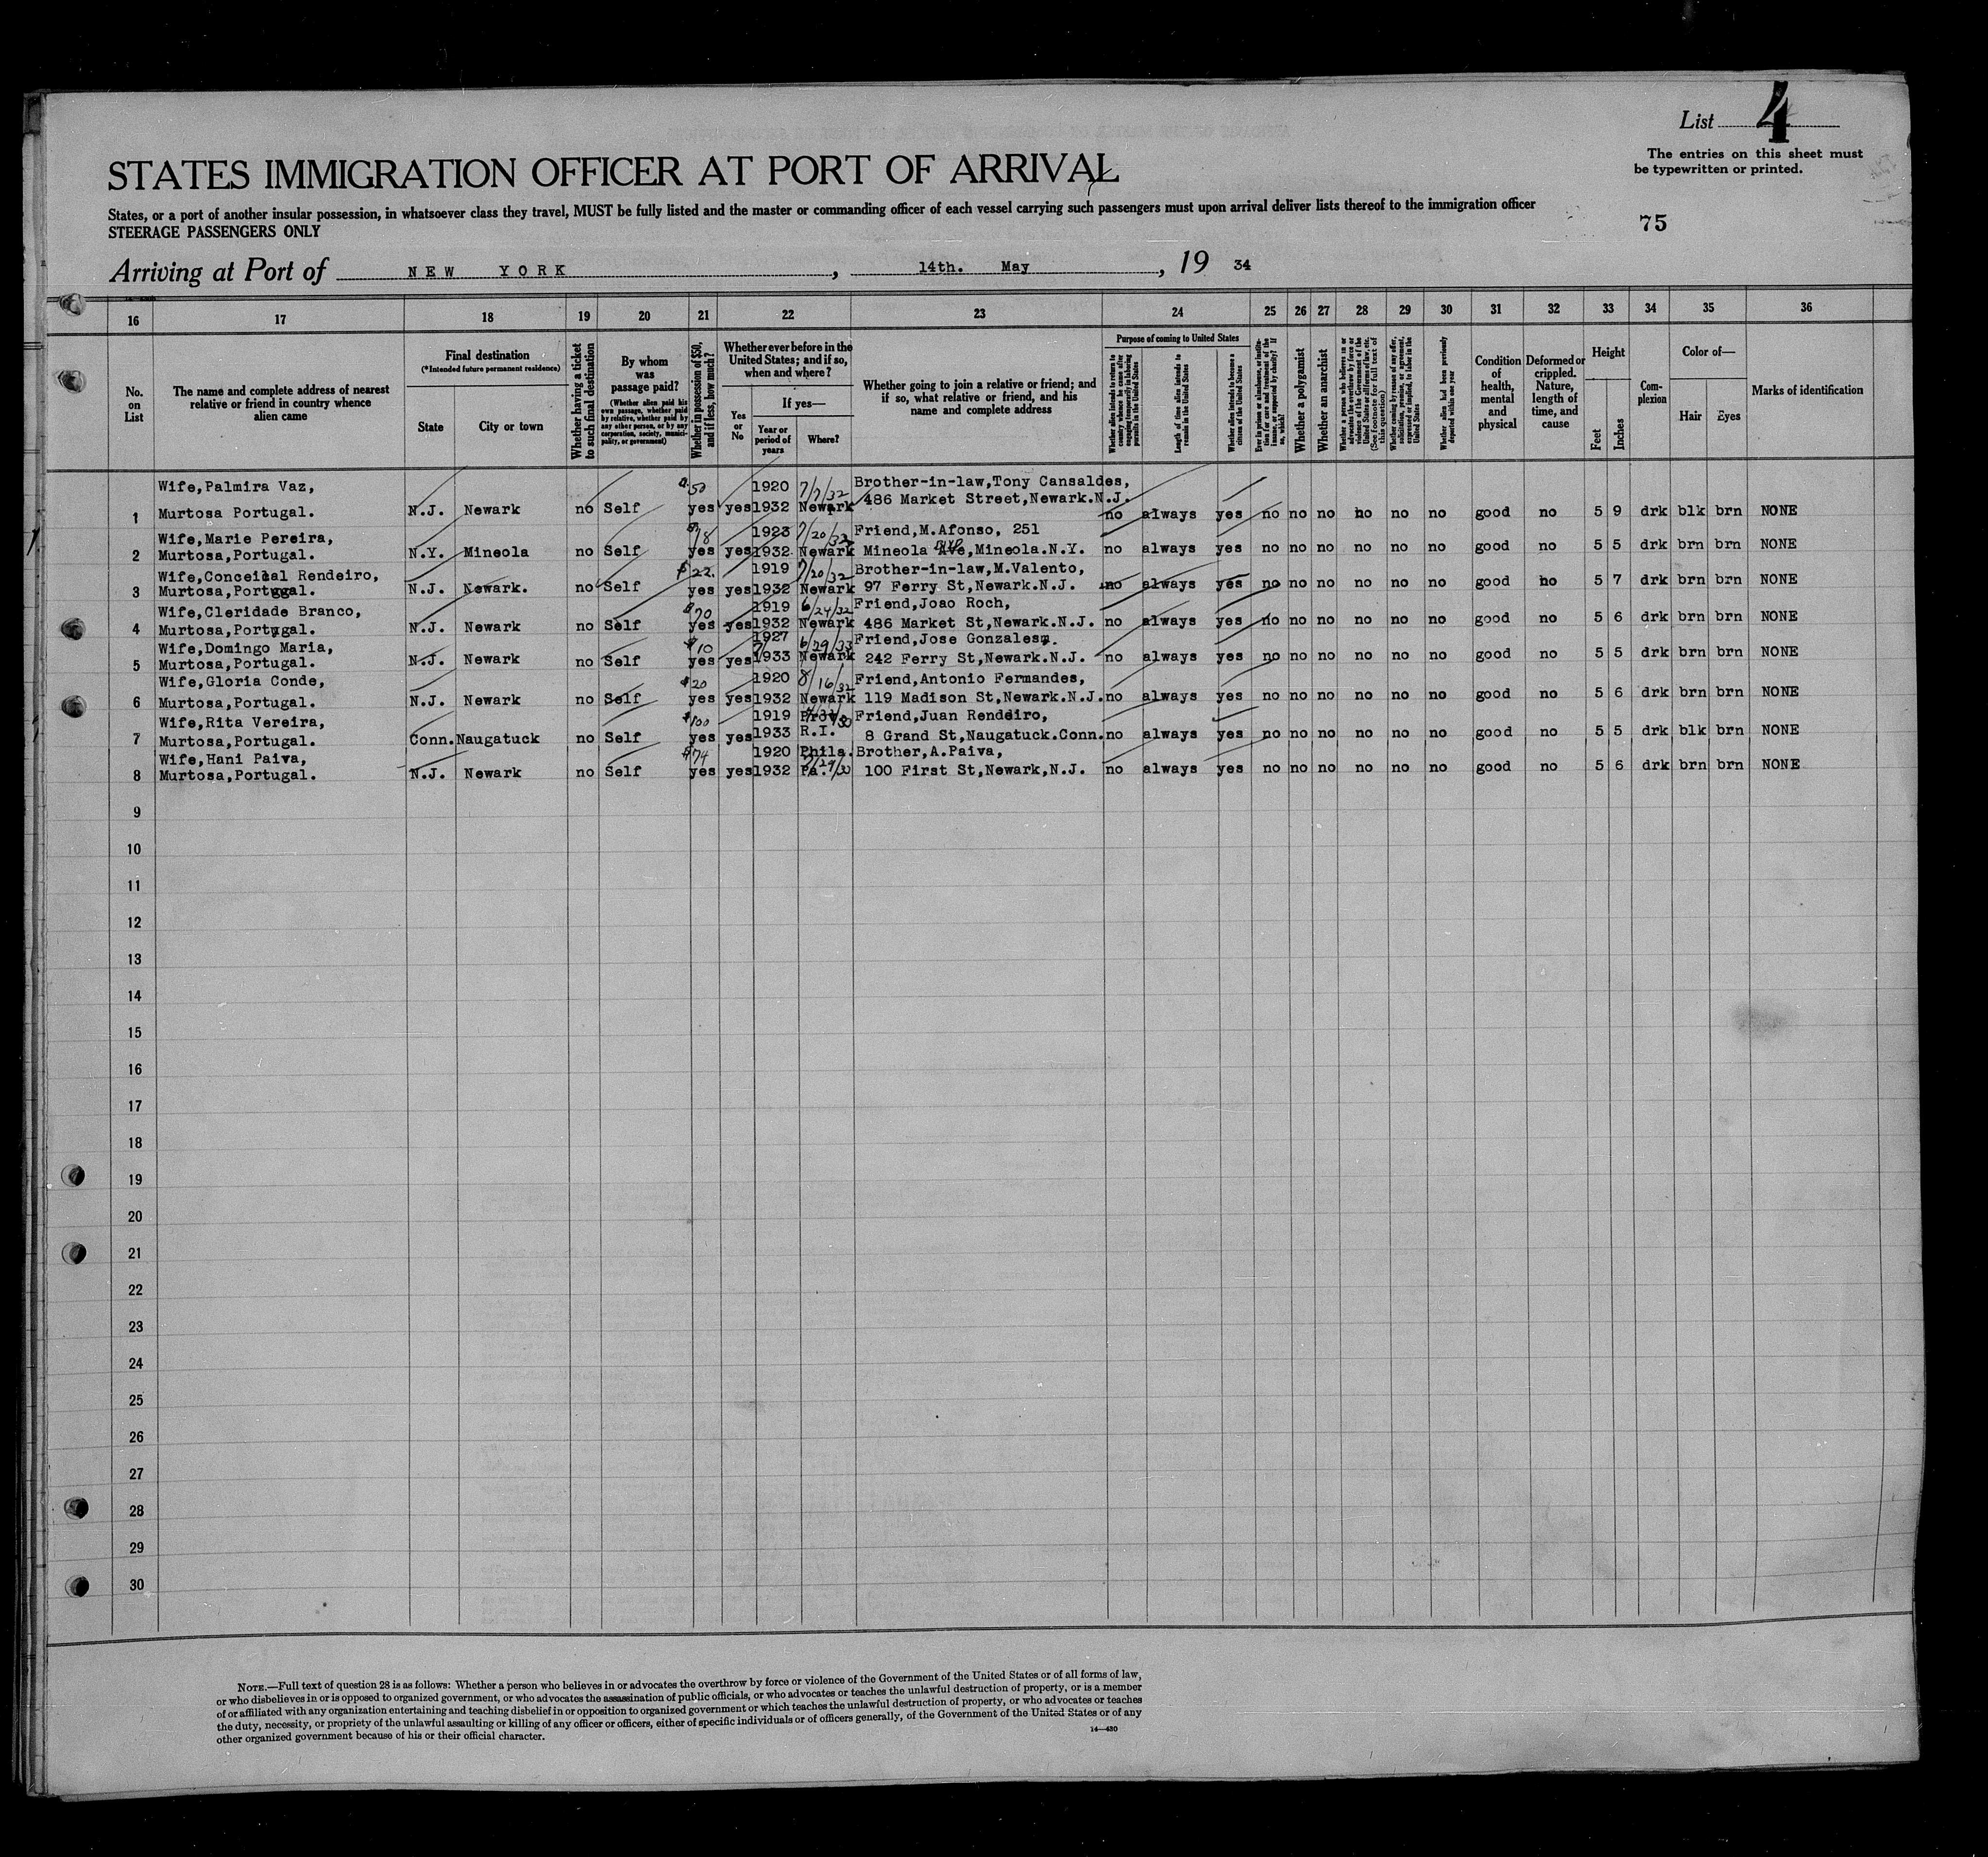 List 4
The entries on this sheet must
be typewritten or printed.
STATES IMMIGRATION OFFICER AT PORT OF ARRIVAL
States, or a port of another insular possession, in whatsoever class they travel, MUST be fully listed and the master or commanding officer of each vessel carrying such passengers must upon arrival deliver lists thereof to the immigration officer
STEERAGE PASSENGERS ONLY
75
Arriving at Port of NEW YORK, 14th. May, 19 34
16 17 18 19 20 21 22 23 24 25 26 27 28 29 30 31 32 33 34 35 36
No. on List
The name and complete address of nearest
relative or friend in country whence
alien came
Final destination
(*Intended future permanent residence)
State
City or town
Whether having a ticket
to such final destination
By whom
was
passage paid?
(Whether alien paid his
own passage, whether paid
by relative, whether paid by
any other person, or by any
corporation, society, munici-
pality, or government)
Whether in possession of $50,
and if less, how much?
Whether ever before in the
United States; and if so,
when and where?
Yes
or
No
If yes—
Year or
period of
years
Where?
Whether going to join a relative or friend; and
if so, what relative or friend, and his
name and complete address
Purpose of coming to United States
Whether alien intends to return to
country whence he came after
engaging temporarily in laboring
pursuits in the United States
Length of time alien intends to
remain in the United States
Whether alien intends to become a
citizen of the United States
Whether a polygamist
Whether an anarchist
Whether alien had been previously
deported within one year
Condition
of
health,
mental
and
physical
Deformed or
crippled.
Nature,
length of
time, and
cause
Height
Feet
Inches
Com-
plexion
Color of—
Hair
Eyes
Marks of identification
Wife,Palmira Vaz, $50 1920 7/7/32 Brother-in-law,Tony Cansaldes,
1 Murtosa Portugal. N.J. Newark no Self yes yes 1932 Newark 486 Market Street,Newark.N.J. no always yes no no no no no no good no 5 9 drk blk brn NONE
Wife,Marie Pereira, 1923 7/20/32 Friend,M.Afonso, 251
2 Murtosa,Portugal. N.Y. Mineola no Self yes yes 1932 Newark Mineola Ave,Mineola.N.Y. no always yes no no no no no no good no 5 5 drk brn brn NONE
Wife,Conceical Rendeiro, $22. 1919 7/20/32 Brother-in-law,M.Valento,
3 Murtosa,Portugal. N.J. Newark. no Self yes yes 1932 Newark 97 Ferry St,Newark.N.J. no always yes no no no no no no good no 5 7 drk brn brn NONE
Wife,Cleridade Branco, $70 1919 6/24/32 Friend,Joao Roch,
4 Murtosa,Portugal. N.J. Newark no Self yes yes 1932 Newark 486 Market St,Newark.N.J. no always yes no no no no no no good no 5 6 drk brn brn NONE
Wife,Domingo Maria, $10 1927 6/29/33 Friend,Jose Gonzales.
5 Murtosa,Portugal. N.J. Newark no Self yes yes 1933 Newark 242 Ferry St,Newark.N.J. no always yes no no no no no no good no 5 5 drk brn brn NONE
Wife,Gloria Conde, $20 1920 8/16/32 Friend,Antonio Fermandes,
6 Murtosa,Portugal. N.J. Newark no Self yes yes 1932 Newark 119 Madison St,Newark.N.J. no always yes no no no no no no good no 5 6 drk brn brn NONE
Wife,Rita Vereira, $100 1919 Friend,Juan Rendeiro,
7 Murtosa,Portugal. Conn. Naugatuck no Self yes yes 1933 R.I. 8 Grand St,Naugatuck.Conn. no always yes no no no no no no good no 5 5 drk blk brn NONE
Wife,Hani Paiva, $74 1920 Phila. Brother,A.Paiva,
8 Murtosa,Portugal. N.J. Newark no Self yes yes 1932 Pa. 100 First St,Newark,N.J. no always yes no no no no no no good no 5 6 drk brn brn NONE
9
10
11
12
13
14
15
16
17
18
19
20
21
22
23
24
25
26
27
28
29
30
NOTE.—Full text of question 28 is as follows: Whether a person who believes in or advocates the overthrow by force or violence of the Government of the United States or of all forms of law,
or who disbelieves in or is opposed to organized government, or who advocates the assassination of public officials, or who advocates or teaches the unlawful destruction of property, or is a member
of or affiliated with any organization entertaining and teaching disbelief in or opposition to organized government or which teaches the unlawful destruction of property, or who advocates or teaches
the duty, necessity, or propriety of the unlawful assaulting or killing of any officer or officers, either of specific individuals or of officers generally, of the Government of the United States or of any
other organized government because of his or their official character.
14—430